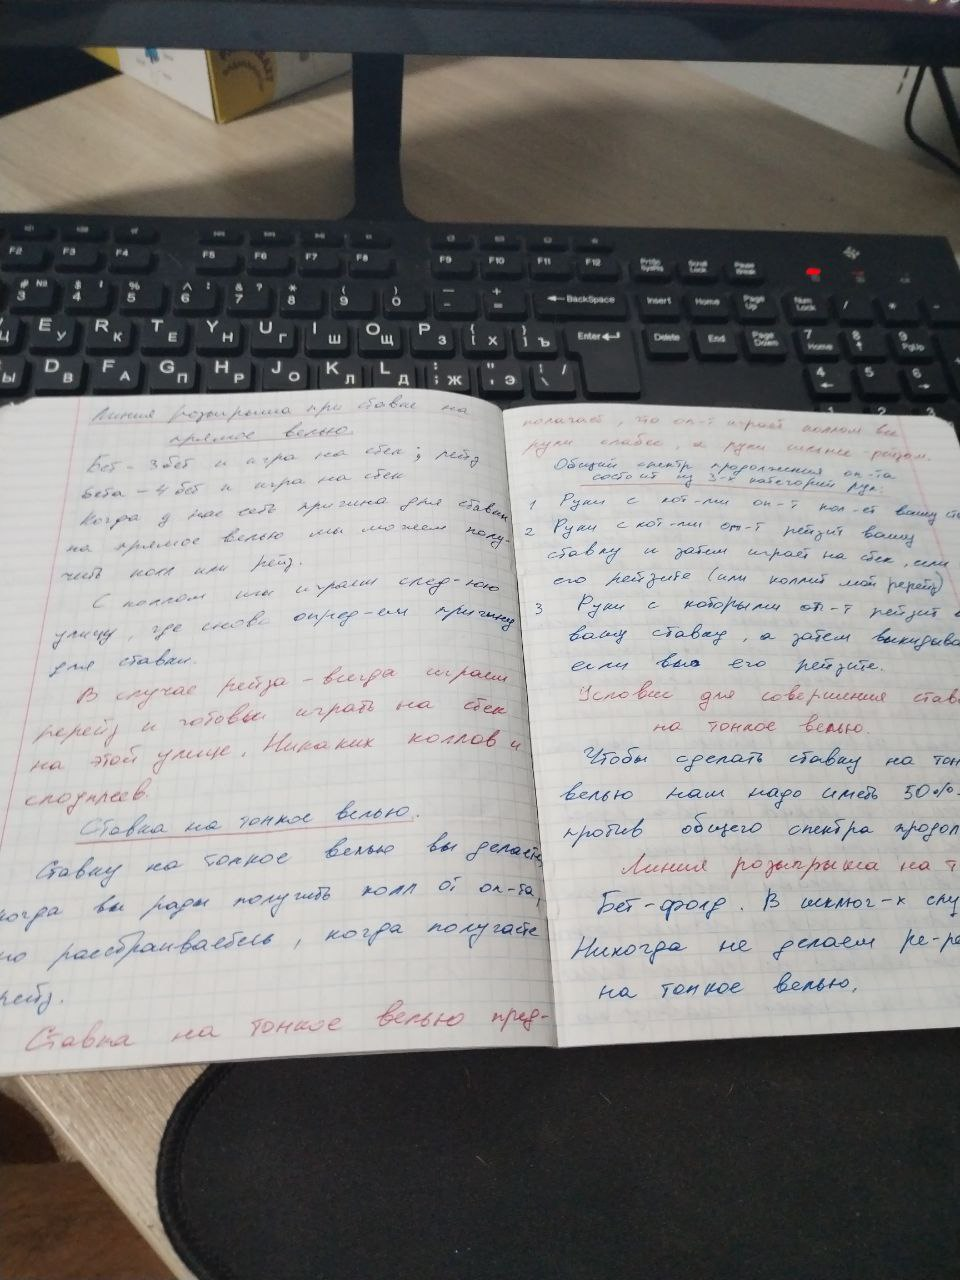 Линия розыгрыша при ставке на
прямое велью.
Бет - 3бет и игра на стек; рейз
бета - 4бет и игра на стек
Когда у нас есть причина для ставки
на прямое велью мы можем полу-
чить колл или рейз.
С коллом мы играем след-юю
улицу, где снова опред-ем причину
для ставки.
В случае рейза - всегда играем
ререйз и готовы играть на стек
на этой улице. Никаких коллов и
слоуплеев.
Ставка на тонкое велью.
Ставку на тонкое велью вы делаете,
когда вы рады получить колл от оп-та,
но расстраиваетесь, когда получаете
рейз.
Ставка на тонкое велью пред-
полагает, что оп-т играет коллом все
руки слабее, а руки сильнее - рейзом.
Общий спектр продолжения оп-та
состоит из 3-х категорий рук:
1 Руки с кот-ми оп-т кол-ет вашу
2 Руки с кот-ми оп-т рейзит вашу
ставку и затем играет на стек, если
его рейзите (или коллит мой ререйз)
3 Руки с которыми оп-т рейзит
вашу ставку, а затем выкидыва
если вы его рейзите.
Условие для совершения став
на тонкое велью.
Чтобы сделать ставку на тон
велью нам надо иметь 50%
против общего спектра продол
Линия розыгрыша на т
Бет-фолд. В исключ-х слу
Никогда не делаем ре-ре
на тонкое велью.
F2 F3 F4 F5 F6 F7 F8 F9 F10 F11 F12 PrtSc SysRq Scroll Lock Pause Break
# № 3 $ ; 4 % 5 ^ : 6 & ? 7 * 8 ( 9 ) 0 - + = BackSpace Insert Home Page Up Num Lock / * -
Ц E У R К T Е Y Н U Г I Ш O Щ P З { [ Х } ] Ъ Enter Delete End Page Down 7 Home 8 9 PgUp +
Ы D В F А G П H Р J О K Л L Д : ; Ж " ' Э | \ / 4 5 6
1 2 3